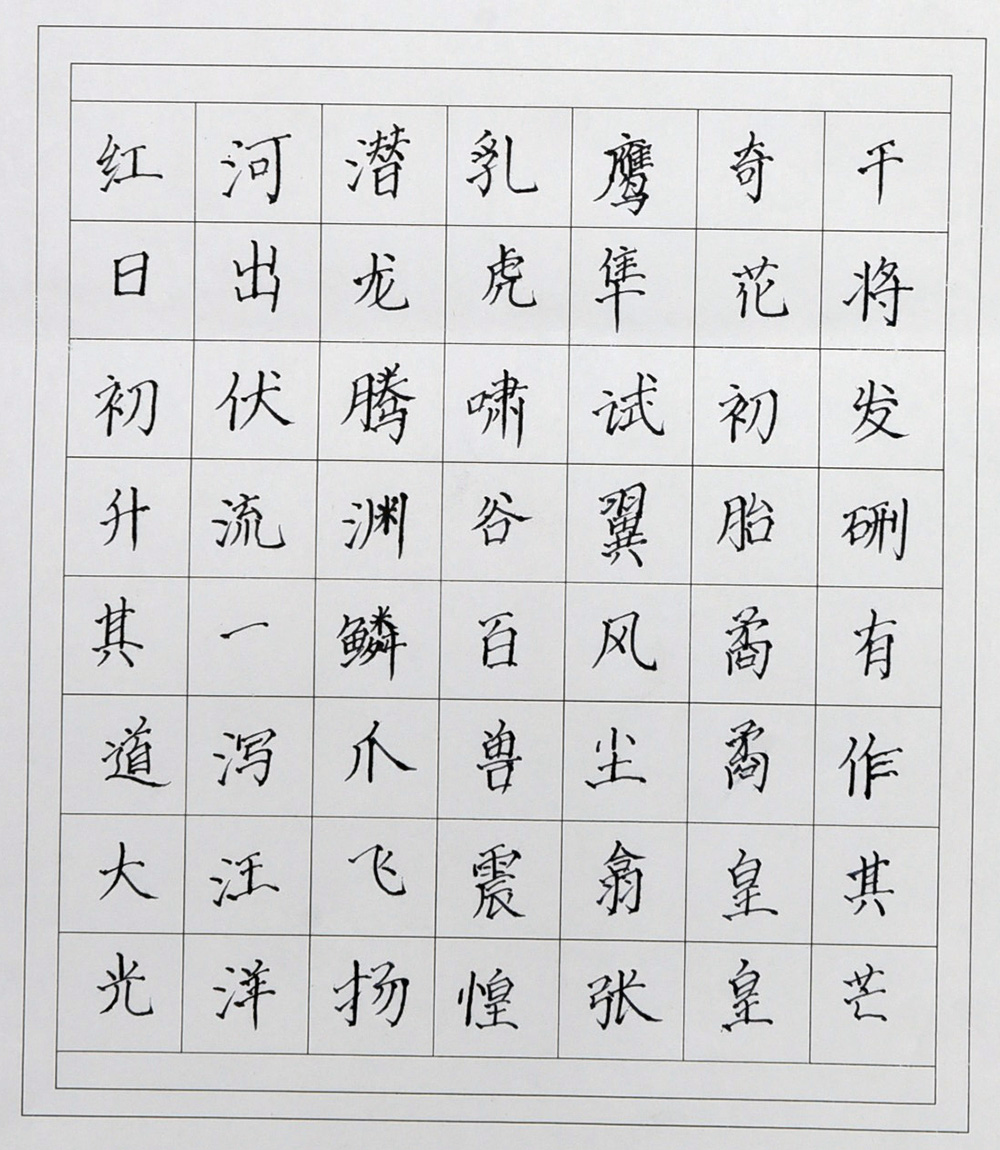 红日初升其道大光
河出伏流一泻汪洋
潜龙腾渊鳞爪飞扬
乳虎啸谷百兽震惶
鹰隼试翼风尘翕张
奇花初胎矞矞皇皇
干将发硎有作其芒